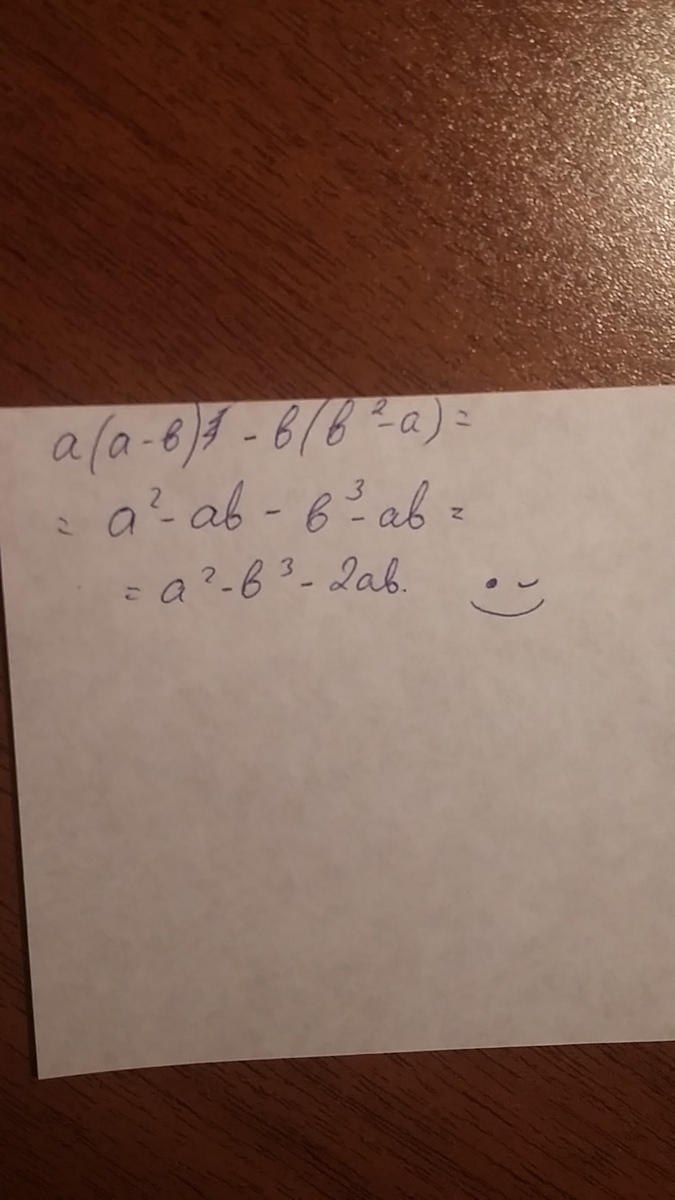 a(a-b) - b(b²-a)=
= a²-ab - b³-ab =
= a²-b³-2ab.